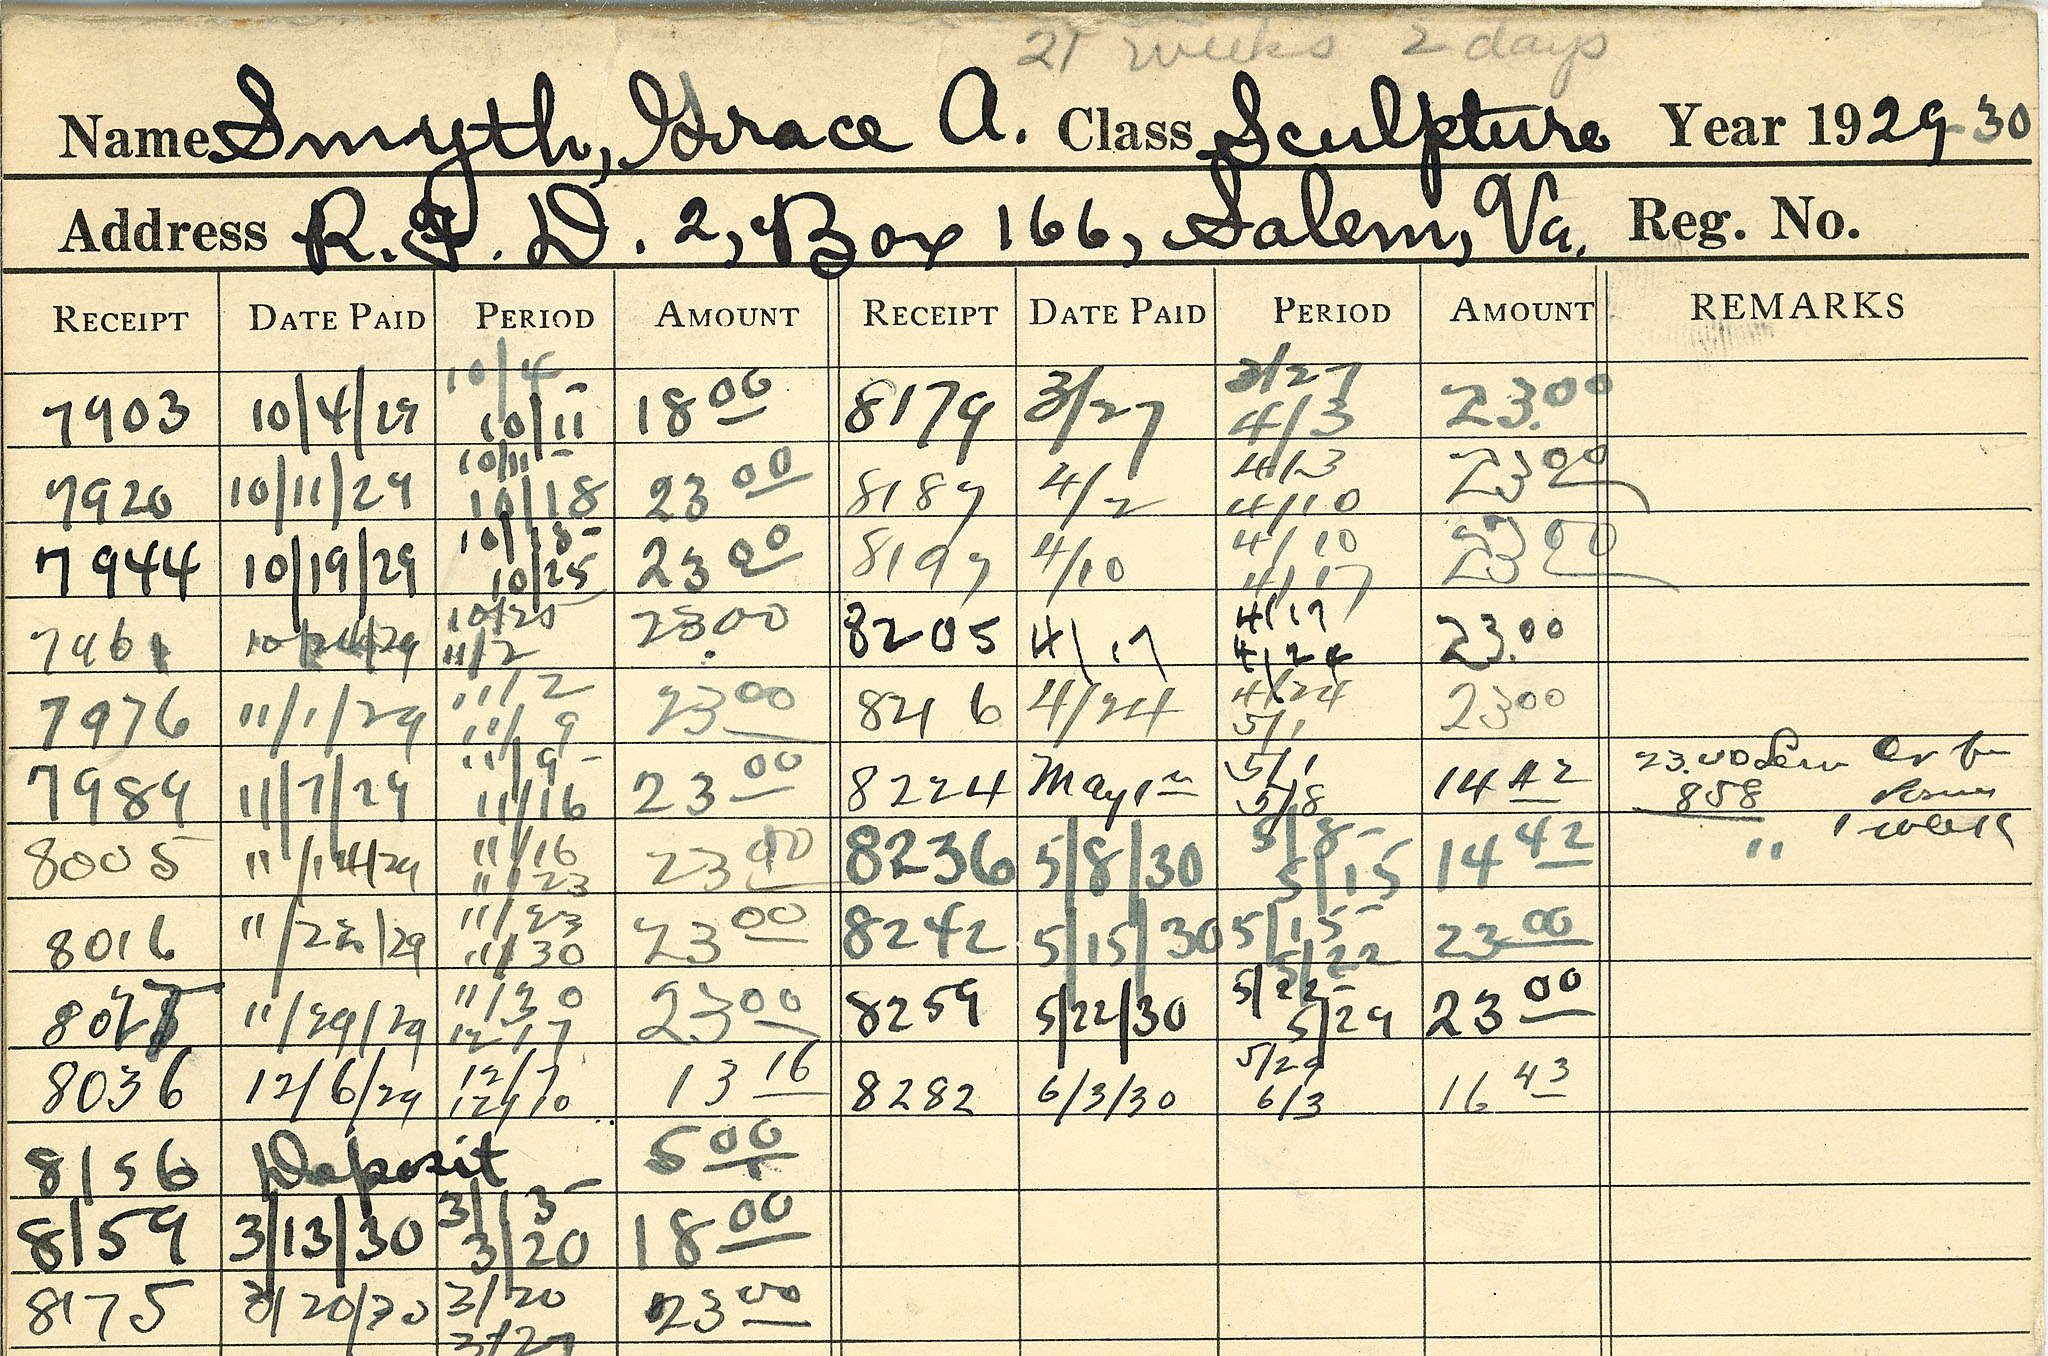 21 weeks 2 days
Name Smyth, Grace A. Class Sculpture Year 1929-30
Address R.F.D. 2, Box 166, Salem, Va. Reg. No.
RECEIPT DATE PAID PERIOD AMOUNT RECEIPT DATE PAID PERIOD AMOUNT REMARKS
7903 10/4/29 10/4- 10/11 18 00 8179 3/27 3/27 4/3 23.00
7920 10/11/29 10/11- 10/18 23 00 8189 4/2 4/3 4/10 23 00
7944 10/19/29 10/18- 10/25 23 00 8197 4/10 4/10 4/17 23 00
7961 10/24/29 10/25 11/2 23.00 8205 4/17 4/17 4/24 23.00
7976 11/1/29 11/2 11/9 23 00 8216 4/24 4/24 5/1 23 00
7989 11/7/29 11/9- 11/16 23 00 8224 May 1st 5/1 5/8 14 42 23.00 858
8005 11/14/29 11/16 11/23 23 00 8236 5/8/30 5/8- 5/15 14 42 " 1 week
8016 11/22/29 11/23 11/30 23 00 8242 5/15/30 5/15- 5/22 23 00
11/29/29 11/30 12/7 23 00 8259 5/22/30 5/22- 5/29 23 00
8036 12/6/29 12/7 12/10 13 16 8282 6/3/30 5/29 6/3 16 43
8156 Deposit 5 00
8159 3/13/30 3/13- 3/20 18 00
8175 3/20/30 3/20 3/27 23 00